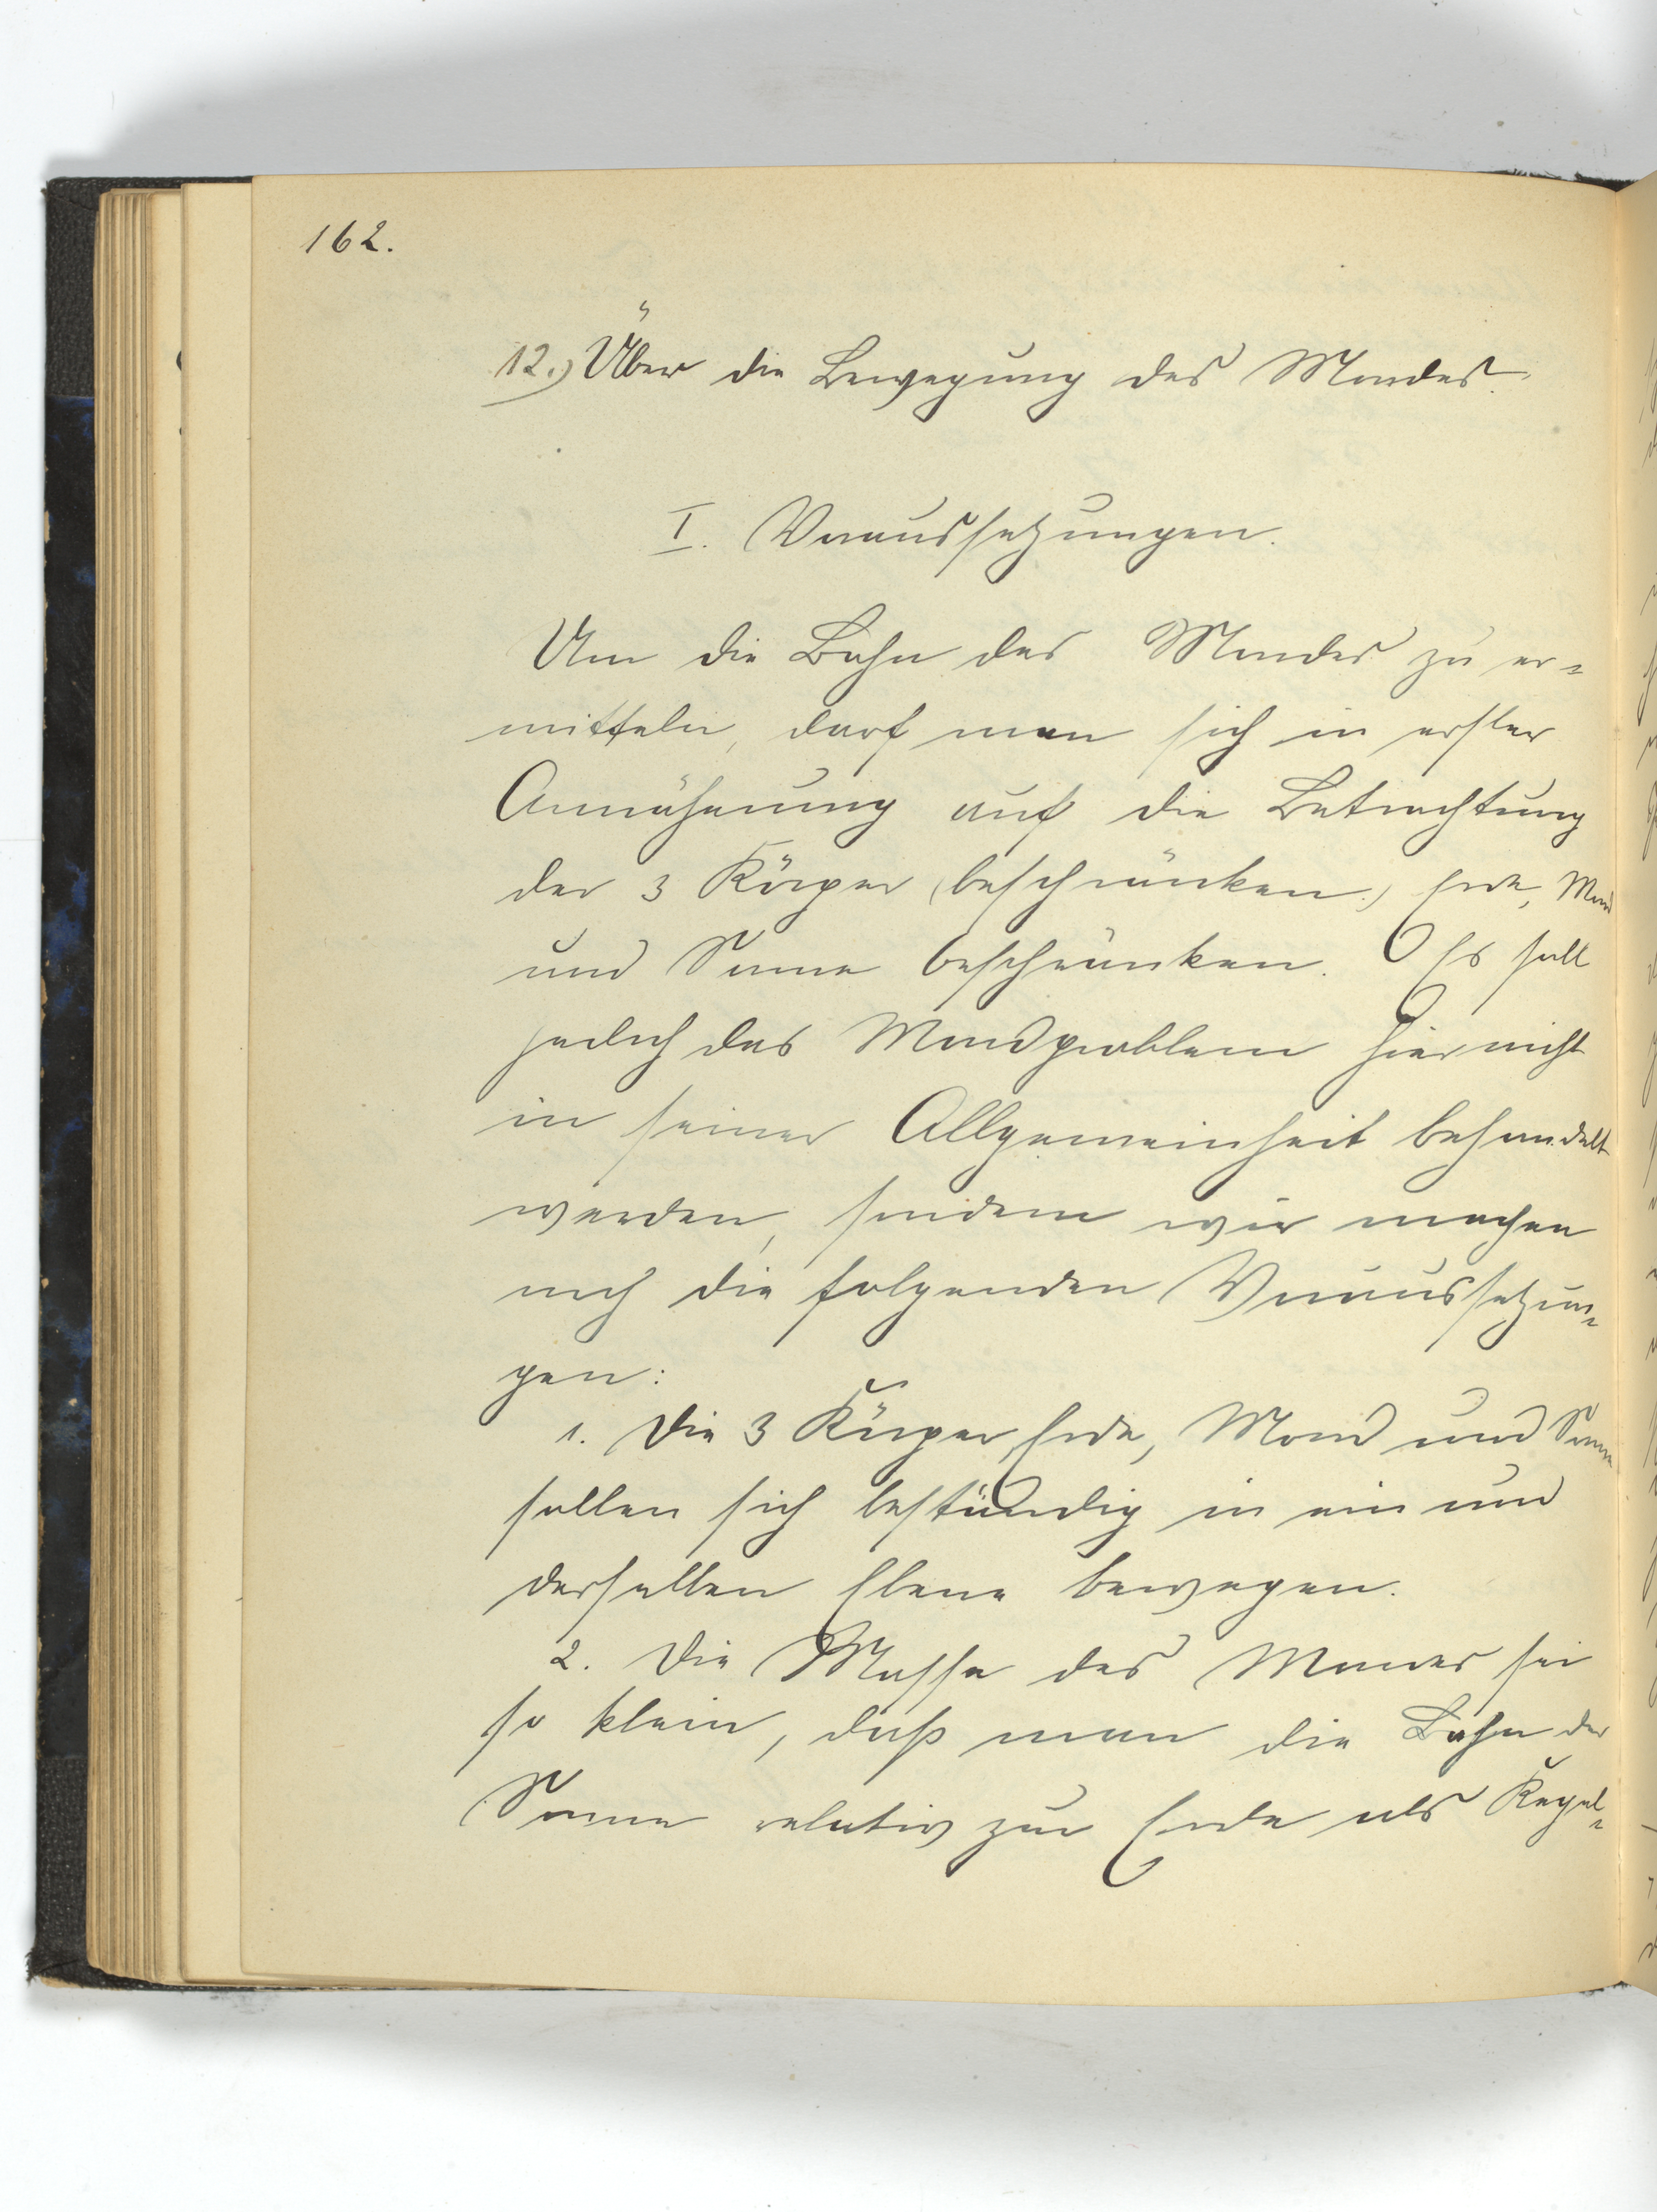 162.
12.) Über die Bewegung des Mondes.
I. Voraussetzungen.
Um die Bahn des Mondes zu er-
mitteln, darf man sich in erster
Annäherung auf die Betrachtung
der 3 Körper (beschränken.) Erde, Mond
und Sonne beschränken. Es soll
jedoch das Mondproblem hier nicht
in seiner Allgemeinheit behandelt
werden, sondern wir machen
noch die folgenden Voraussetzun-
gen:
1. Die 3 Körper Erde, Mond und Sonne
sollen sich beständig in ein und
derselben Ebene bewegen.
2. Die Masse des Mondes sei
so klein, daß man die Bahn der
Sonne relativ zur Erde als Kegel-